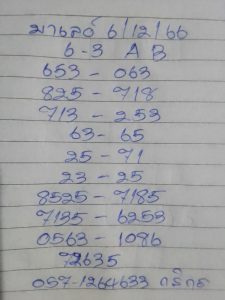 มาเลย์ 6/12/66
6-3 A B
653 - 063
825 - 718
713 - 253
63 - 65
25 - 71
23 - 25
8525 - 7185
7135 - 6253
0563 - 1086
72635
097-1264633